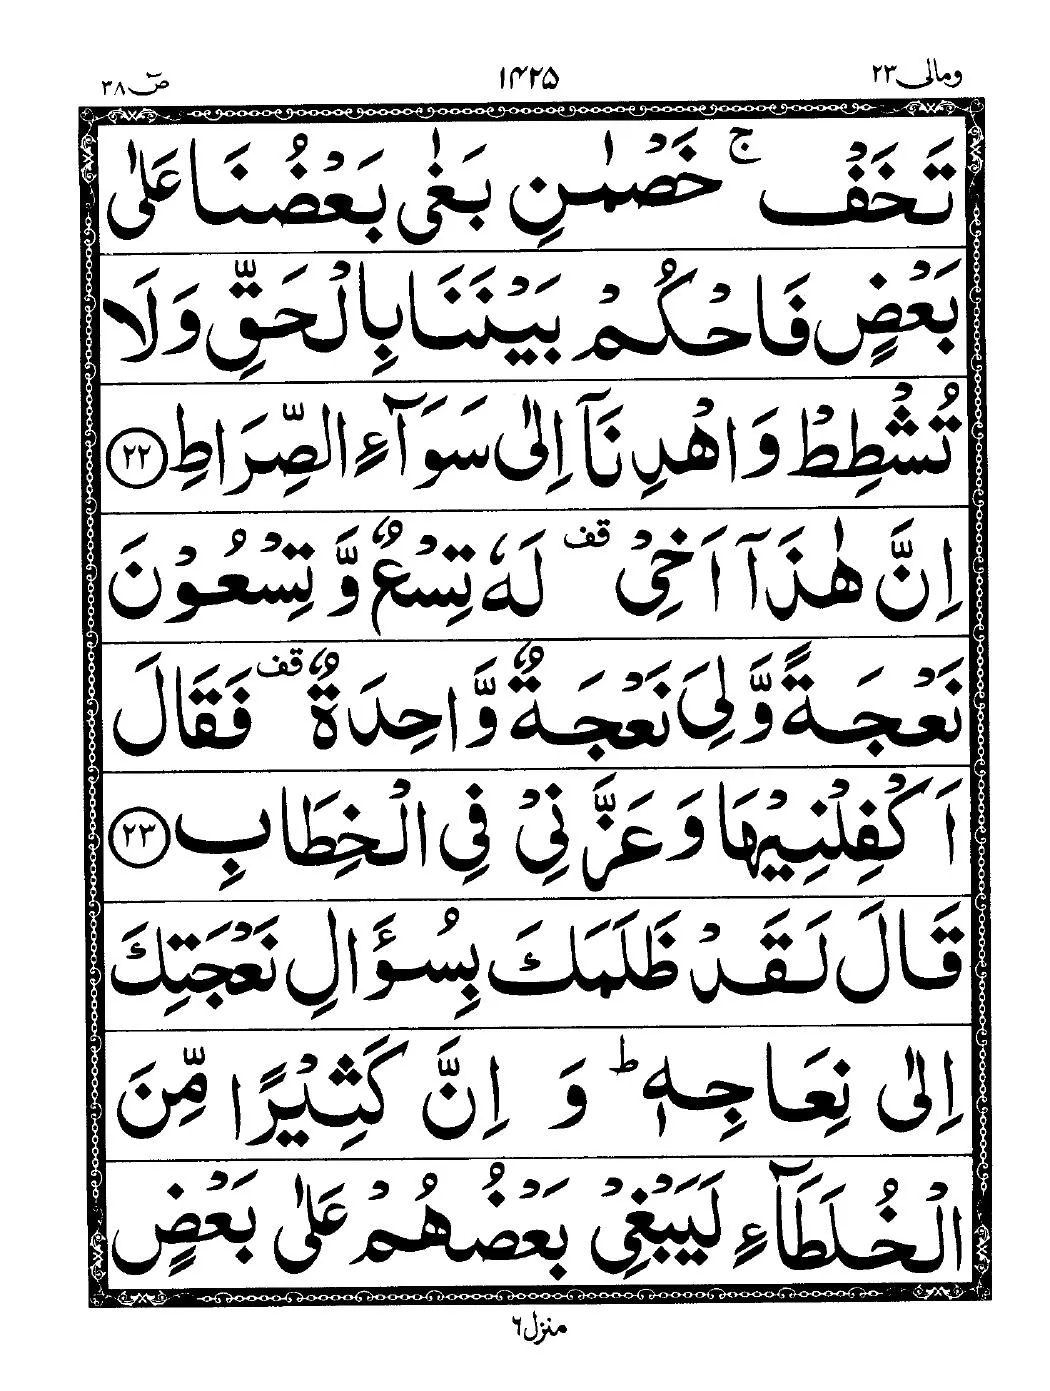 ومالی ۲۳ ۱۴۲۵ صٓ ۳۸
تَخَفْ ۚ خَصْمٰنِ بَغٰی بَعْضُنَا عَلٰی
بَعْضٍ فَاحْكُمْ بَيْنَنَا بِالْحَقِّ وَلَا
تُشْطِطْ وَاهْدِنَآ اِلٰی سَوَآءِ الصِّرَاطِ ﴿۲۲﴾
اِنَّ هٰذَآ اَخِیْ ۫ قف لَهٗ تِسْعٌ وَّ تِسْعُوْنَ
نَعْجَةً وَّلِیَ نَعْجَةٌ وَّاحِدَةٌ قف فَقَالَ
اَكْفِلْنِيْهَا وَعَزَّنِیْ فِی الْخِطَابِ ﴿۲۳﴾
قَالَ لَقَدْ ظَلَمَكَ بِسُؤَالِ نَعْجَتِكَ
اِلٰی نِعَاجِهٖ ؕ وَ اِنَّ كَثِيْرًا مِّنَ
الْخُلَطَآءِ لَيَبْغِیْ بَعْضُهُمْ عَلٰی بَعْضٍ
منزل ۶